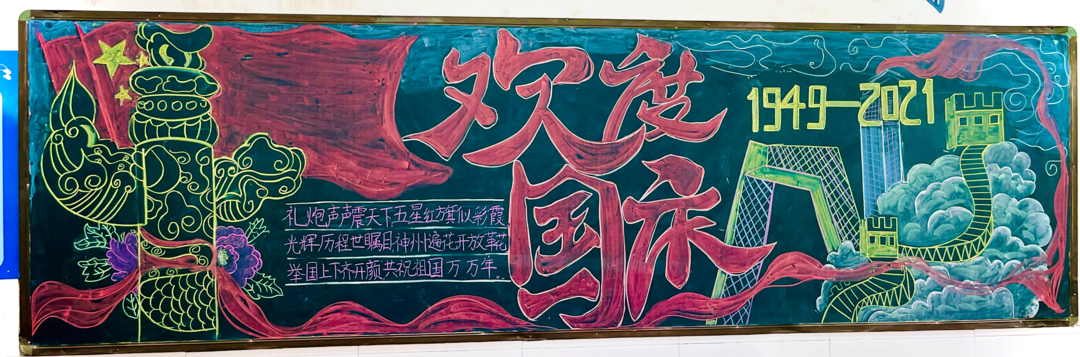 欢度
国庆
1949—2021
礼炮声声震天下五星红旗似彩霞
光辉历程世瞩目神州遍花开放华花
举国上下齐开颜共祝祖国万万年..